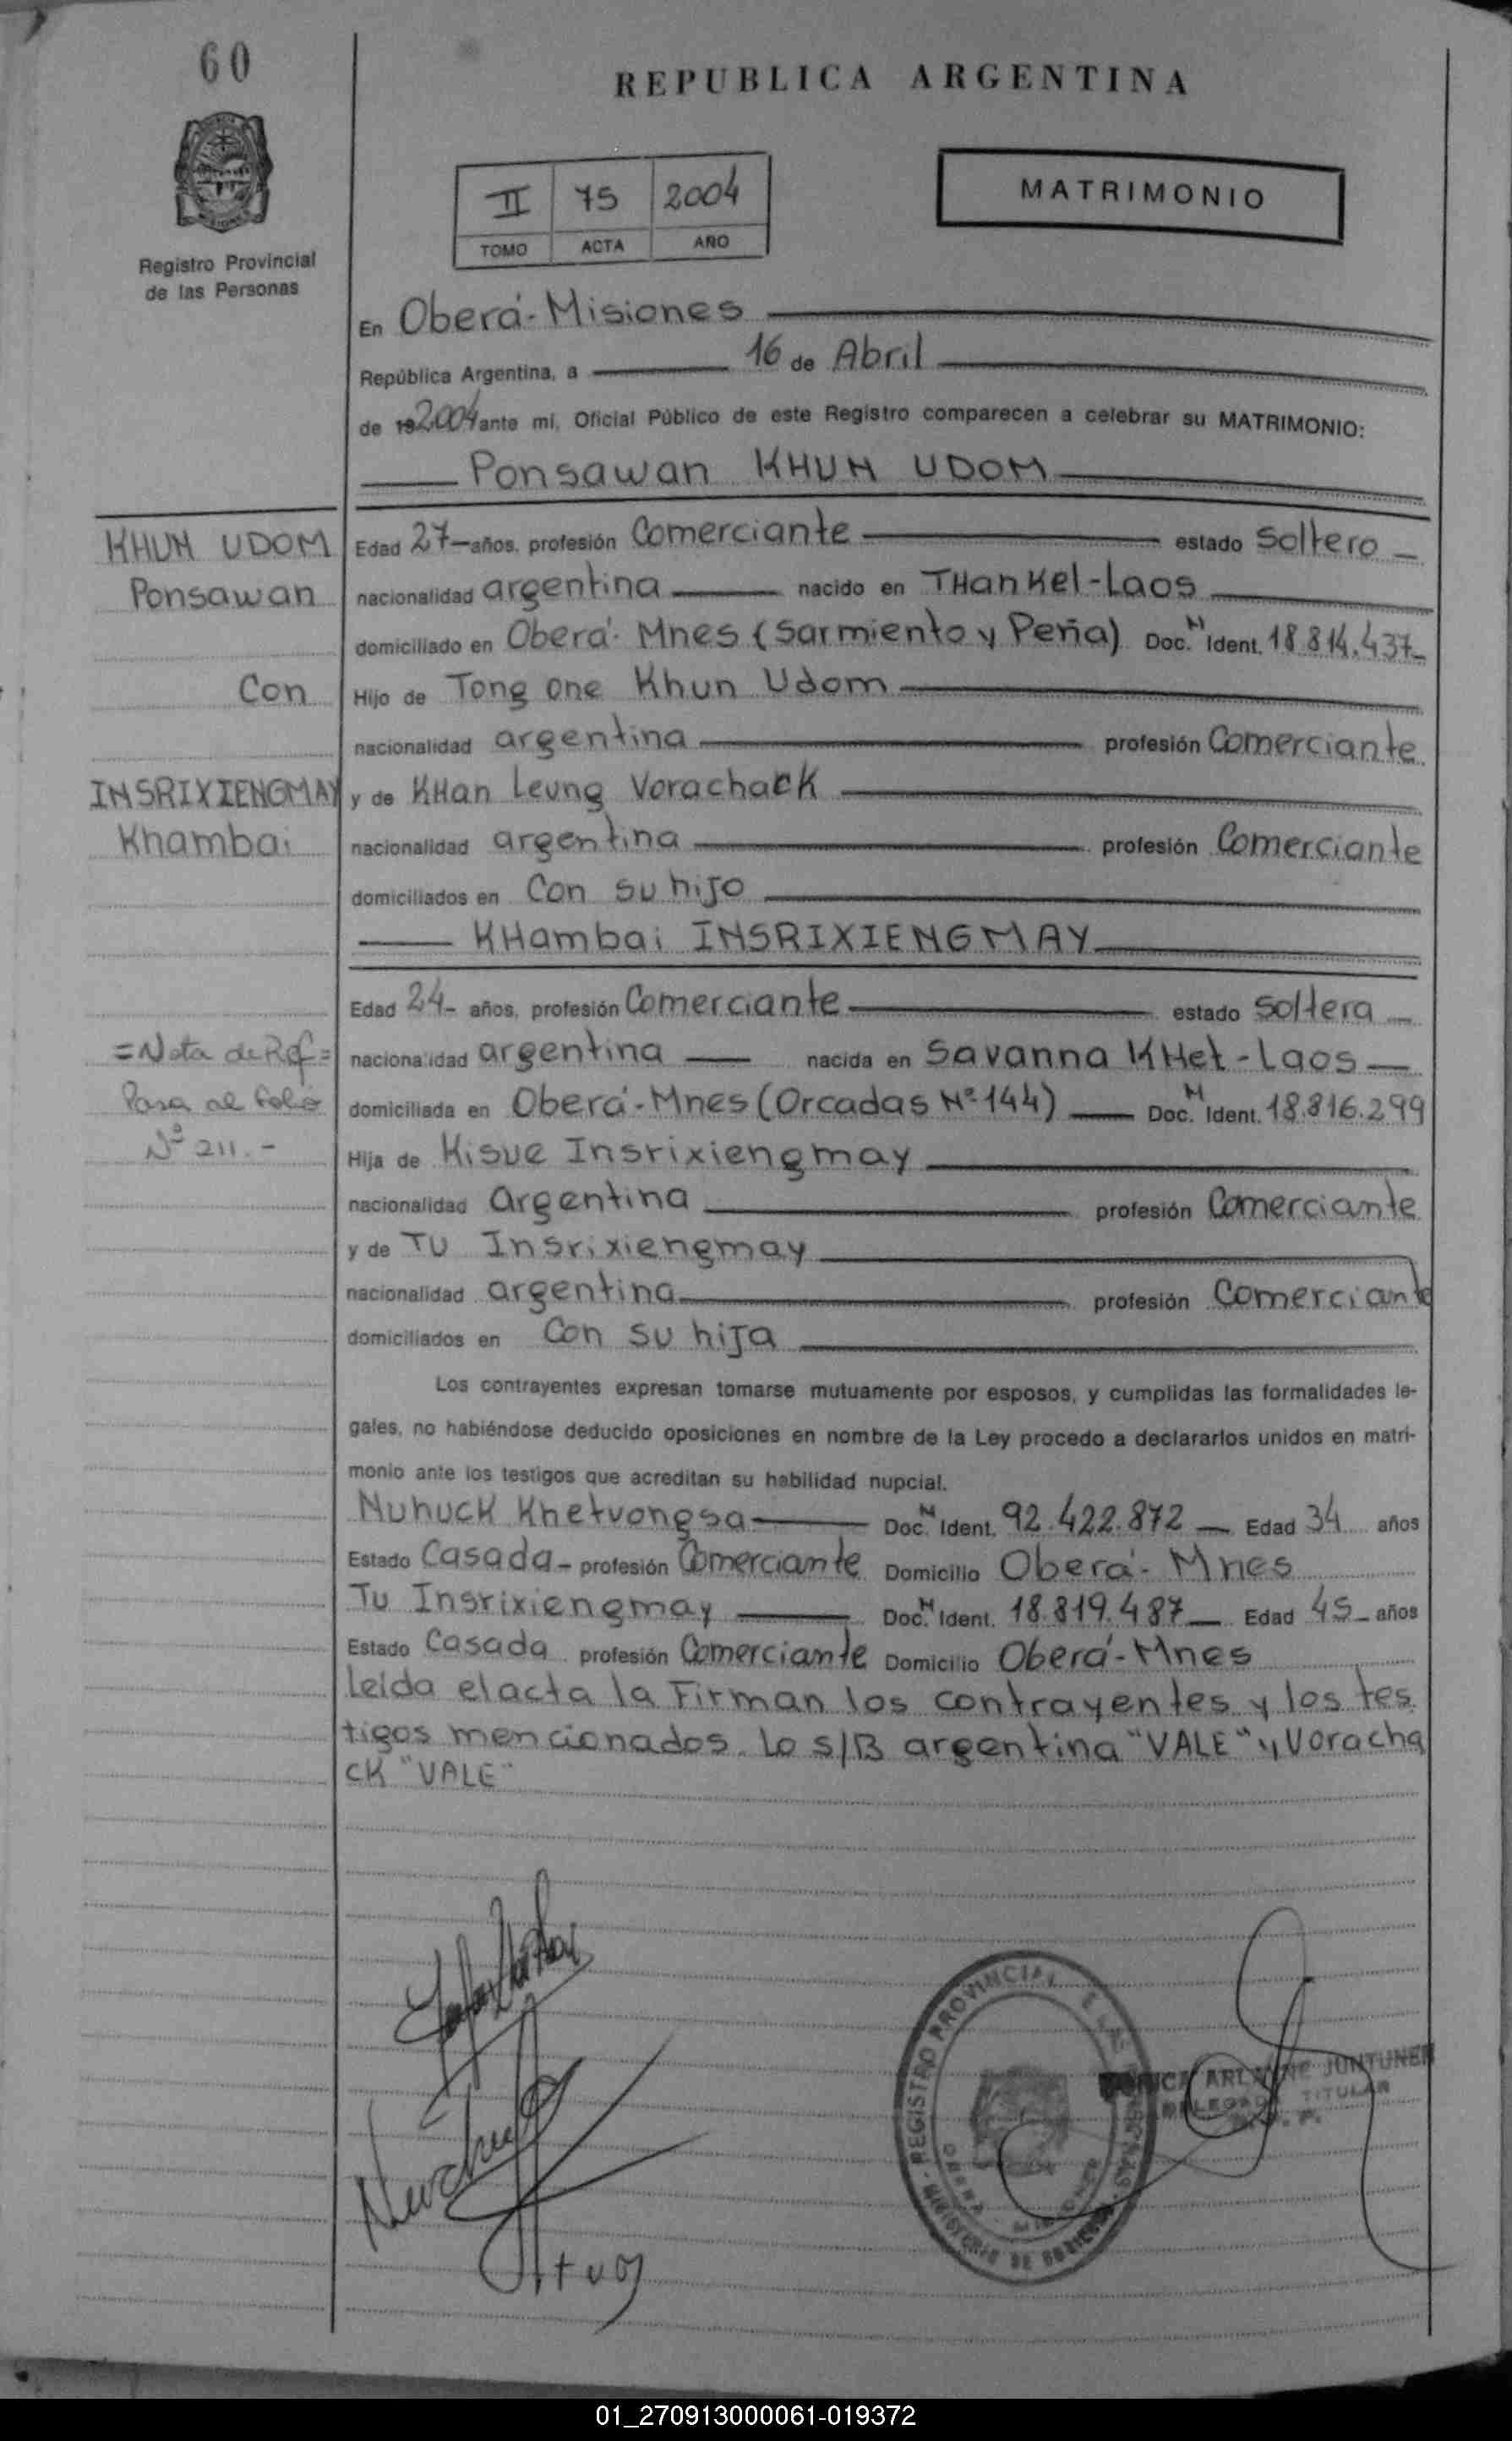 60
REPUBLICA ARGENTINA
II 75 2004
TOMO ACTA AÑO
MATRIMONIO
Registro Provincial
de las Personas
En Oberá-Misiones
República Argentina, a 16 de Abril
de 192004 ante mí, Oficial Público de este Registro comparecen a celebrar su MATRIMONIO:
Ponsawan KHUN UDOM
KHUN UDOM
Ponsawan
Con
INSRIXIENGMAY
Khambai
=Nota de Ref=
Pasa al folio
Nº 211.-
Edad 27- años, profesión Comerciante estado Soltero
nacionalidad argentina nacido en THanKel-Laos
domiciliado en Oberá-Mnes (Sarmiento y Peña) Doc. N Ident. 18.814.437-
Hijo de Tong one Khun Udom
nacionalidad argentina profesión Comerciante
y de KHan Leung Vorachack
nacionalidad argentina profesión Comerciante
domiciliados en Con su hijo
KHambai INSRIXIENGMAY
Edad 24- años, profesión Comerciante estado Soltera
nacionalidad argentina nacida en Savanna KHet-Laos
domiciliada en Oberá-Mnes (Orcadas Nº 144) Doc. N Ident. 18.816.299
Hija de Kisue Insrixiengmay
nacionalidad argentina profesión Comerciante
y de TU Insrixiengmay
nacionalidad argentina profesión Comerciante
domiciliados en Con su hija
Los contrayentes expresan tomarse mutuamente por esposos, y cumplidas las formalidades le-
gales, no habiéndose deducido oposiciones en nombre de la Ley procedo a declararlos unidos en matri-
monio ante los testigos que acreditan su habilidad nupcial.
Nuhuck Khetvongsa Doc. N Ident. 92.422.872 Edad 34 años
Estado Casada- profesión Comerciante Domicilio Oberá-Mnes
Tu Insrixiengmay Doc. N Ident. 18.819.487 Edad 45- años
Estado Casada profesión Comerciante Domicilio Oberá-Mnes
leída el acta la Firman los contrayentes y los tes
tigos mencionados. Lo s/B argentina "VALE" y Voracha
ck "VALE"
REGISTRO PROVINCIAL DE LAS
MINISTERIO DE GOBIERNO
ARLAINE JUNTUNEN
TITULAR
01_270913000061-019372